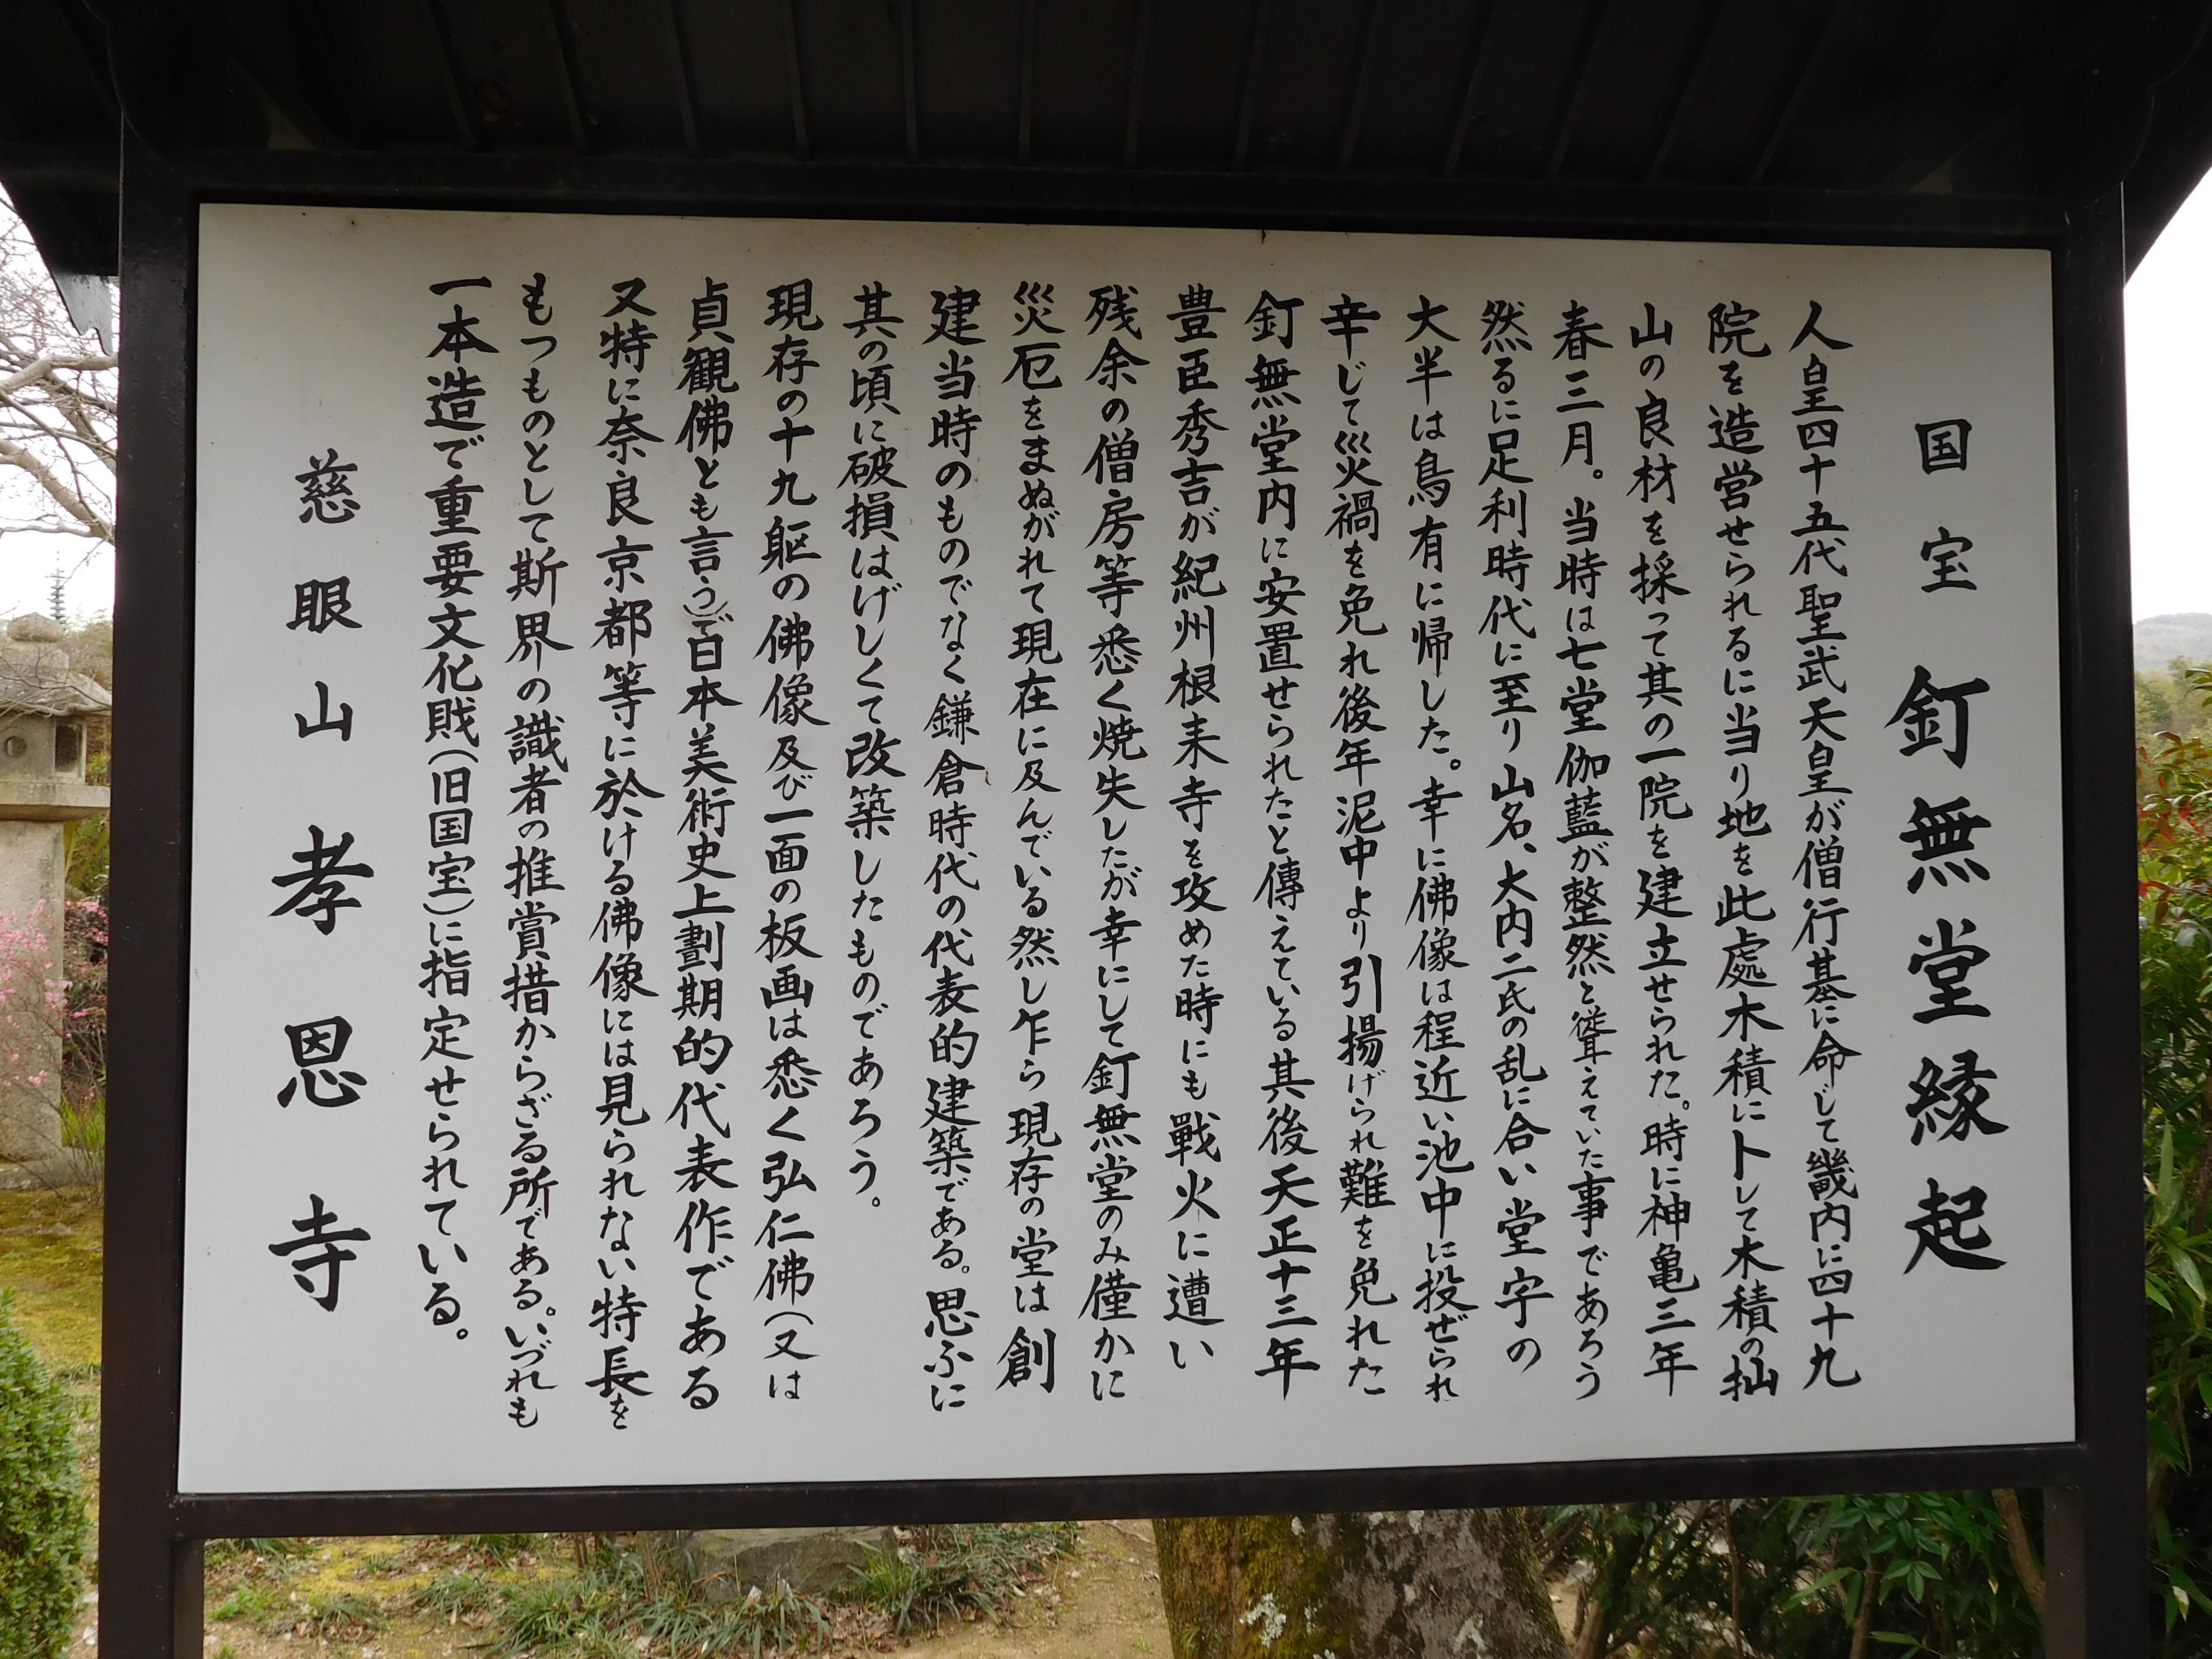 国宝 釘無堂縁起
人皇四十五代聖武天皇が僧行基に命じて畿内に四十九
院を造営せられるに当り地を此處木積にトして木積の杣
山の良材を採って其の一院を建立せられた。時に神亀三年
春三月。当時は七堂伽藍が整然と聳えていた事であろう
然るに足利時代に至り山名、大内二氏の乱に合い堂宇の
大半は鳥有に帰した。幸に佛像は程近い池中に投ぜられ
辛じて災禍を免れ後年泥中より引揚げられ難を免れた
釘無堂内に安置せられたと傳えている其後天正十三年
豊臣秀吉が紀州根来寺を攻めた時にも戰火に遭い
残余の僧房等悉く焼失したが幸にして釘無堂のみ僅かに
災厄をまぬがれて現在に及んでいる然し乍ら現存の堂は創
建当時のものでなく鎌倉時代の代表的建築である。思ふに
其の頃に破損はげしくて改築したもの、であろう。
現存の十九躯の佛像及び一面の板画は悉く弘仁佛(又は
貞観佛とも言う)で日本美術史上劃期的代表作である
又特に奈良京都等に於ける佛像には見られない特長を
もつものとして斯界の識者の推賞措からざる所である。いづれも
一本造で重要文化財(旧国宝)に指定せられている。
慈眼山 孝恩寺